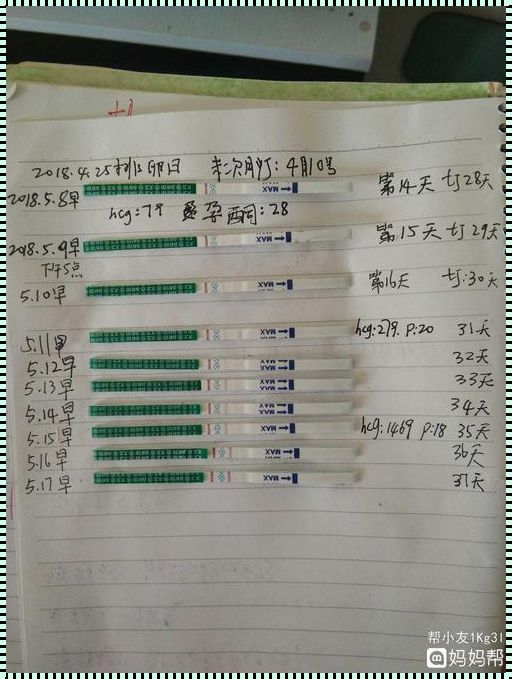 2018.4.25排卵日 末次月经:4月10号
2018.5.8早 MAX 第14天 tJ28天
hcg:79 孕酮:28
2018.5.9早 MAX 第15天 tJ29天
下午5点
5.10早 MAX 第16天 tJ:30天
5.11早 MAX hcg:279.P:20 31天
5.12早 MAX 32天
5.13早 MAX 33天
5.14早 MAX 34天
5.15早 MAX hcg:1469 P:18 35天
5.16早 MAX 36天
5.17早 MAX 37天
帮小友1Kg3l
妈妈帮